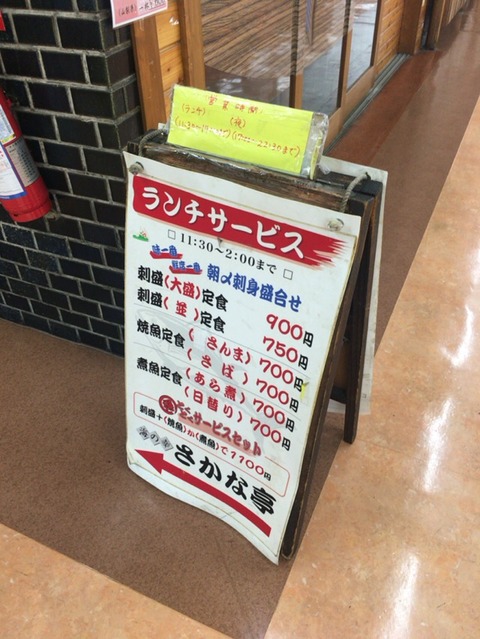 営業時間
(ランチ) (夜)
ランチサービス
□ 11:30～2:00まで □
味一番
鮮度一番 朝〆刺身盛合せ
刺盛(大盛)定食 900円
刺盛(並)定食 750円
焼魚定食(さんま) 700円
(さば) 700円
煮魚定食(あら煮) 700円
(日替り) 700円
サービスセット
刺盛+(焼魚)か(煮魚)で1100円
海の幸 さかな亭